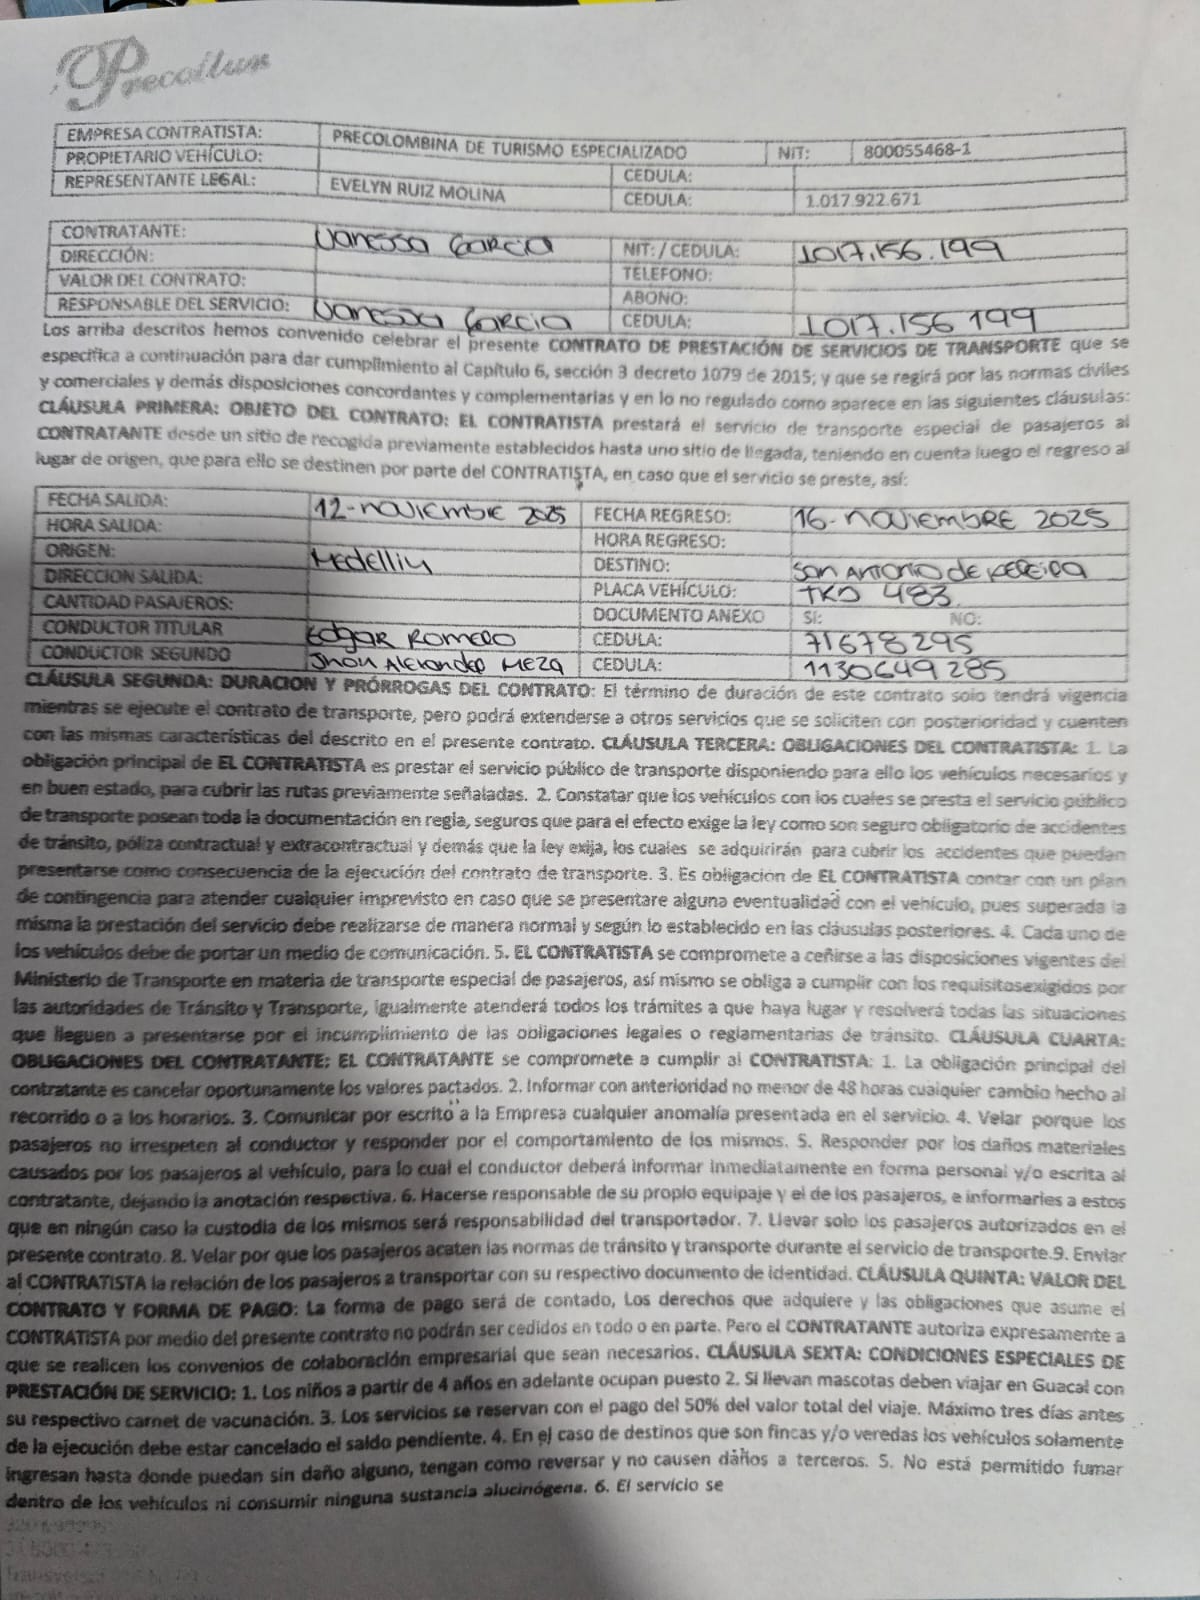 Precoltur
EMPRESA CONTRATISTA: PRECOLOMBINA DE TURISMO ESPECIALIZADO NIT: 800055468-1
PROPIETARIO VEHÍCULO: CEDULA:
REPRESENTANTE LEGAL: EVELYN RUIZ MOLINA CEDULA: 1.017.922.671
CONTRATANTE: Vanessa Garcia NIT: / CEDULA: 1017.156.199
DIRECCIÓN: TELEFONO:
VALOR DEL CONTRATO: ABONO:
RESPONSABLE DEL SERVICIO: Vanessa Garcia CEDULA: 1017.156 199
Los arriba descritos hemos convenido celebrar el presente CONTRATO DE PRESTACIÓN DE SERVICIOS DE TRANSPORTE que se
especifica a continuación para dar cumplimiento al Capítulo 6, sección 3 decreto 1079 de 2015; y que se regirá por las normas civiles
y comerciales y demás disposiciones concordantes y complementarias y en lo no regulado como aparece en las siguientes cláusulas:
CLÁUSULA PRIMERA: OBJETO DEL CONTRATO: EL CONTRATISTA prestará el servicio de transporte especial de pasajeros al
CONTRATANTE desde un sitio de recogida previamente establecidos hasta uno sitio de llegada, teniendo en cuenta luego el regreso al
lugar de origen, que para ello se destinen por parte del CONTRATISTA, en caso que el servicio se preste, así:
FECHA SALIDA: 12-noviembre 2025 FECHA REGRESO: 16-noviembre 2025
HORA SALIDA: HORA REGRESO:
ORIGEN: Medellin DESTINO: San Antonio de Pereira
DIRECCION SALIDA: PLACA VEHÍCULO: TKD 483
CANTIDAD PASAJEROS: DOCUMENTO ANEXO SI: NO:
CONDUCTOR TITULAR Edgar Romero CEDULA: 71678295
CONDUCTOR SEGUNDO Jhon Alexander Meza CEDULA: 1130649285
CLÁUSULA SEGUNDA: DURACION Y PRÓRROGAS DEL CONTRATO: El término de duración de este contrato solo tendrá vigencia
mientras se ejecute el contrato de transporte, pero podrá extenderse a otros servicios que se soliciten con posterioridad y cuenten
con las mismas características del descrito en el presente contrato. CLÁUSULA TERCERA: OBLIGACIONES DEL CONTRATISTA: 1. La
obligación principal de EL CONTRATISTA es prestar el servicio público de transporte disponiendo para ello los vehículos necesarios y
en buen estado, para cubrir las rutas previamente señaladas. 2. Constatar que los vehículos con los cuales se presta el servicio público
de transporte posean toda la documentación en regla, seguros que para el efecto exige la ley como son seguro obligatorio de accidentes
de tránsito, póliza contractual y extracontractual y demás que la ley exija, los cuales se adquirirán para cubrir los accidentes que puedan
presentarse como consecuencia de la ejecución del contrato de transporte. 3. Es obligación de EL CONTRATISTA contar con un plan
de contingencia para atender cualquier imprevisto en caso que se presentare alguna eventualidad con el vehículo, pues superada la
misma la prestación del servicio debe realizarse de manera normal y según lo establecido en las cláusulas posteriores. 4. Cada uno de
los vehículos debe de portar un medio de comunicación. 5. EL CONTRATISTA se compromete a ceñirse a las disposiciones vigentes del
Ministerio de Transporte en materia de transporte especial de pasajeros, así mismo se obliga a cumplir con los requisitosexigidos por
las autoridades de Tránsito y Transporte, igualmente atenderá todos los trámites a que haya lugar y resolverá todas las situaciones
que lleguen a presentarse por el incumplimiento de las obligaciones legales o reglamentarias de tránsito. CLÁUSULA CUARTA:
OBLIGACIONES DEL CONTRATANTE: EL CONTRATANTE se compromete a cumplir al CONTRATISTA: 1. La obligación principal del
contratante es cancelar oportunamente los valores pactados. 2. Informar con anterioridad no menor de 48 horas cualquier cambio hecho al
recorrido o a los horarios. 3. Comunicar por escrito a la Empresa cualquier anomalía presentada en el servicio. 4. Velar porque los
pasajeros no irrespeten al conductor y responder por el comportamiento de los mismos. 5. Responder por los daños materiales
causados por los pasajeros al vehículo, para lo cual el conductor deberá informar inmediatamente en forma personal y/o escrita al
contratante, dejando la anotación respectiva. 6. Hacerse responsable de su propio equipaje y el de los pasajeros, e informarles a estos
que en ningún caso la custodia de los mismos será responsabilidad del transportador. 7. Llevar solo los pasajeros autorizados en el
presente contrato. 8. Velar por que los pasajeros acaten las normas de tránsito y transporte durante el servicio de transporte.9. Enviar
al CONTRATISTA la relación de los pasajeros a transportar con su respectivo documento de identidad. CLÁUSULA QUINTA: VALOR DEL
CONTRATO Y FORMA DE PAGO: La forma de pago será de contado, Los derechos que adquiere y las obligaciones que asume el
CONTRATISTA por medio del presente contrato no podrán ser cedidos en todo o en parte. Pero el CONTRATANTE autoriza expresamente a
que se realicen los convenios de colaboración empresarial que sean necesarios. CLÁUSULA SEXTA: CONDICIONES ESPECIALES DE
PRESTACIÓN DE SERVICIO: 1. Los niños a partir de 4 años en adelante ocupan puesto 2. Si llevan mascotas deben viajar en Guacal con
su respectivo carnet de vacunación. 3. Los servicios se reservan con el pago del 50% del valor total del viaje. Máximo tres días antes
de la ejecución debe estar cancelado el saldo pendiente. 4. En el caso de destinos que son fincas y/o veredas los vehículos solamente
ingresan hasta donde puedan sin daño alguno, tengan como reversar y no causen daños a terceros. 5. No está permitido fumar
dentro de los vehículos ni consumir ninguna sustancia alucinógena. 6. El servicio se